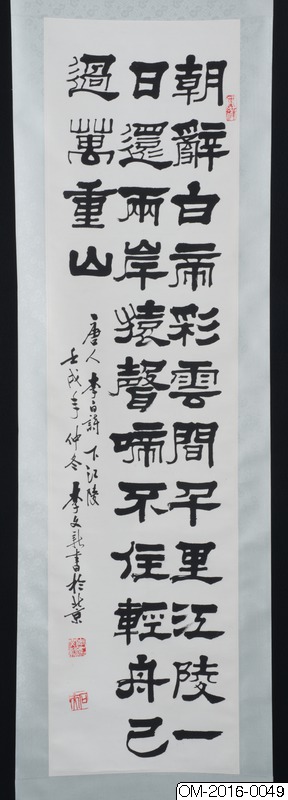 朝辭白帝彩雲間千里江陵一
日還兩岸猿聲啼不住輕舟已
過萬重山
唐人李白詩下江陵
壬戌年仲冬李文新書於北京
OM-2016-0049